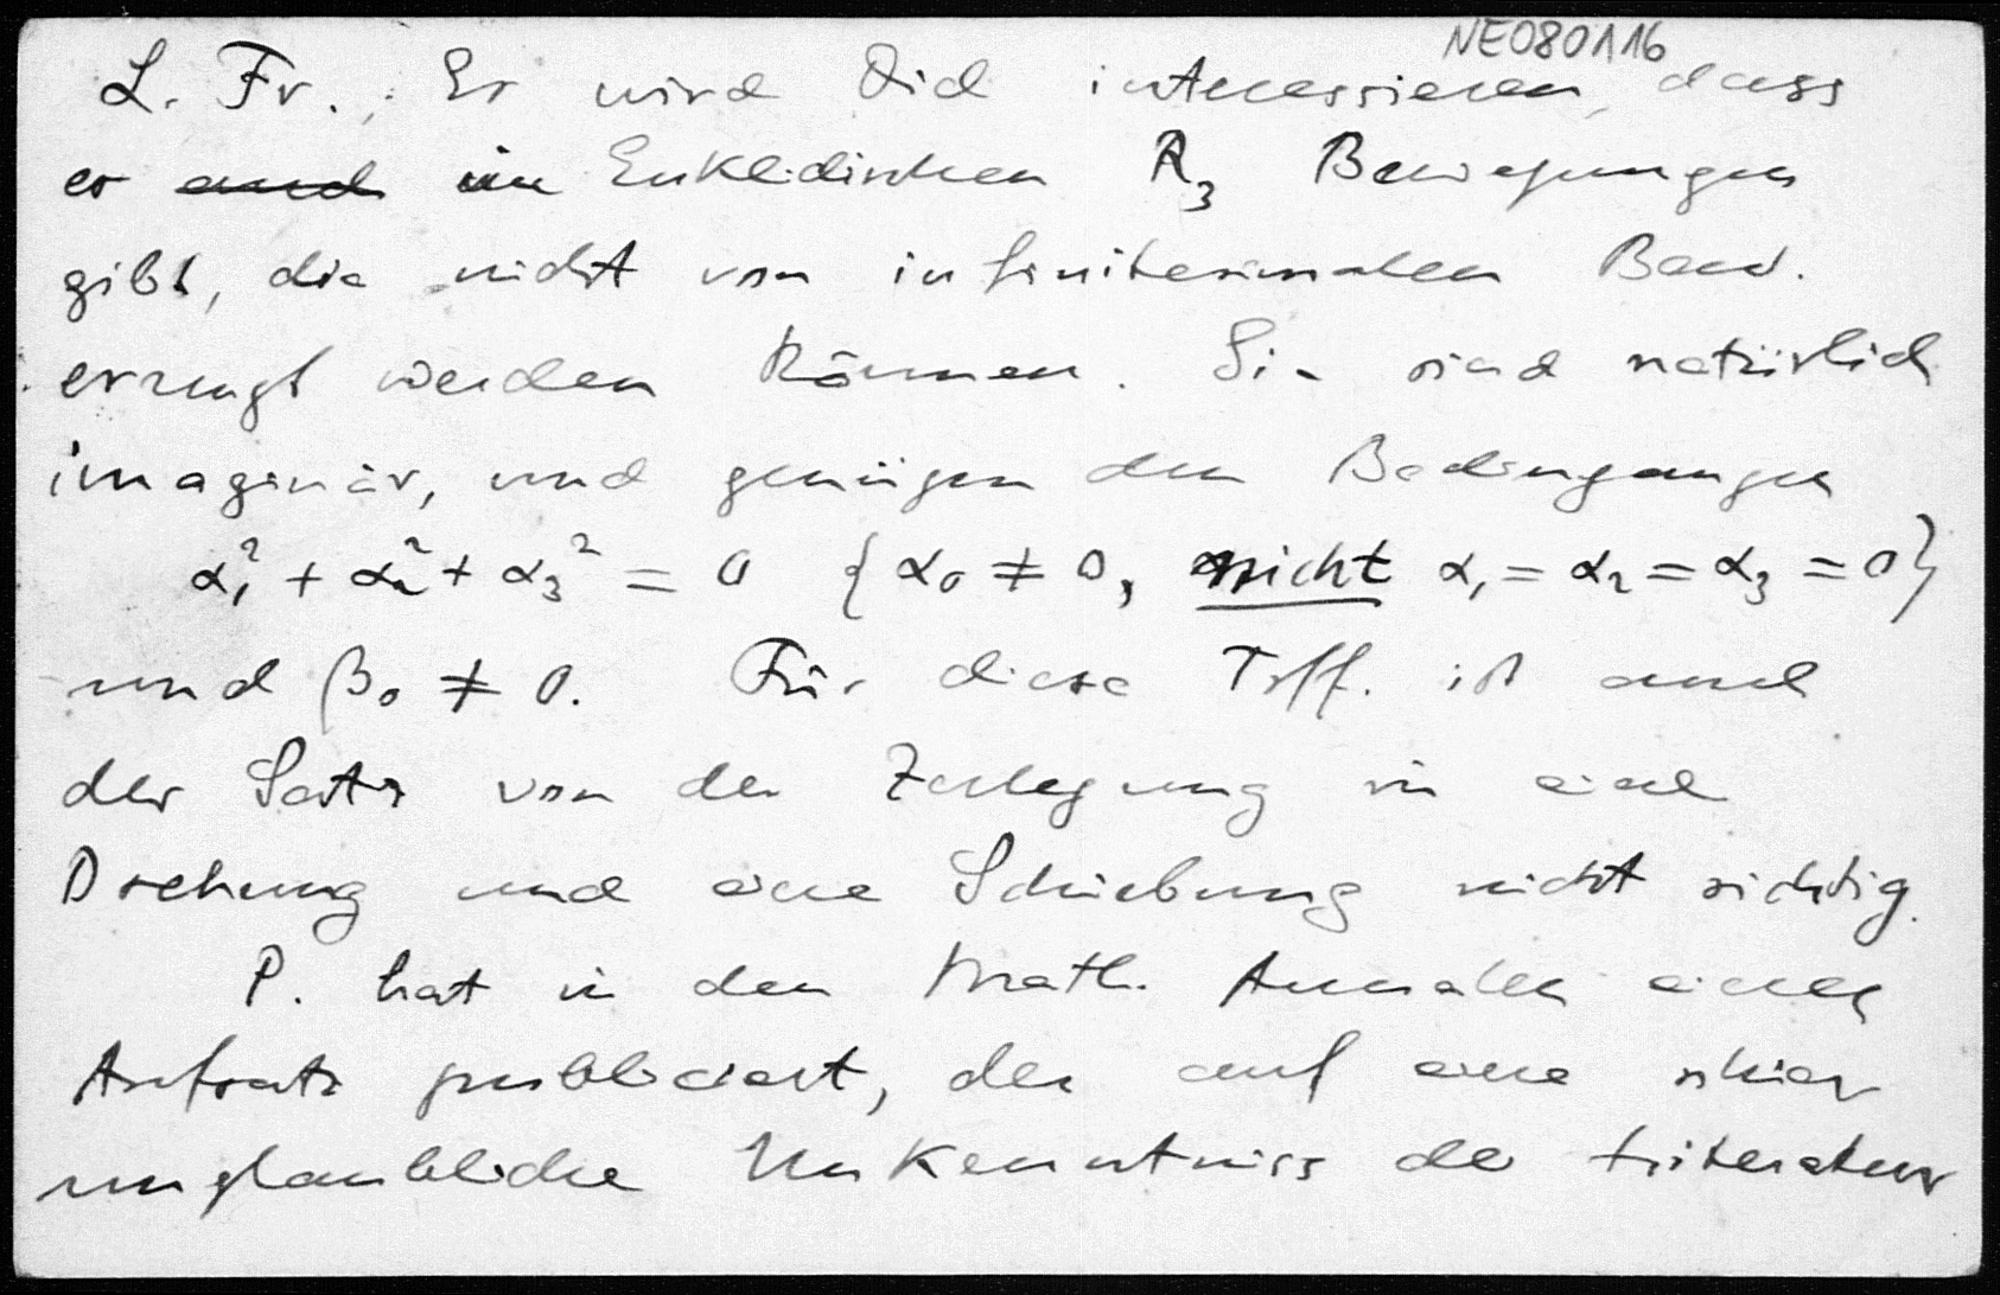 NE080116
L. Fr., Es wird Dich interessieren, dass
es auch im Euklidischen R₃ Bewegungen
gibt, die nicht von infinitesimalen Bew.
erzeugt werden können. Sie sind natürlich
imaginär, und genügen den Bedingungen
α₁² + α₂² + α₃² = 0 {α₀ ≠ 0, nicht α₁ = α₂ = α₃ = 0}
und β₀ ≠ 0. Für diese Trff. ist auch
der Satz von der Zerlegung in eine
Drehung und eine Schiebung nicht richtig.
P. hat in den Math. Annalen einen
Aufsatz publiciert, der auf eine schier
unglaubliche Unkenntniss der Literatur